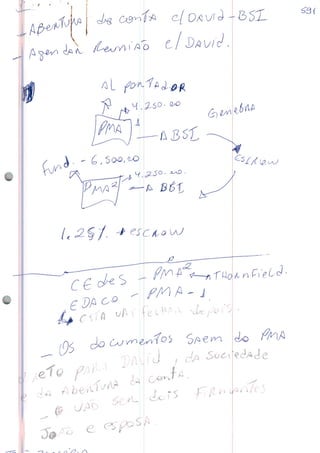 591
- ABERTURA da CONTA c/ DAVID - BSI
- Agendar Reunião c/ DAVID.
AL PORTADOR
4.250.00
GENEBRA
PMA 1 BSI
ESCROW
Fund. - 6.500,00
4.250.00.
PMA2 BSI
1.25%. + ESCROW
CEdeS - PMA2 THORNFIELD.
EDACO - PMA - 1
ESTA VAI FECHAR depois
- Os documentos SAEM do PMA
PARA DAVID, da Sociedade
e da ABERTURA da conta.
- VÃO SER dois FIRMANTES
João e esposa.